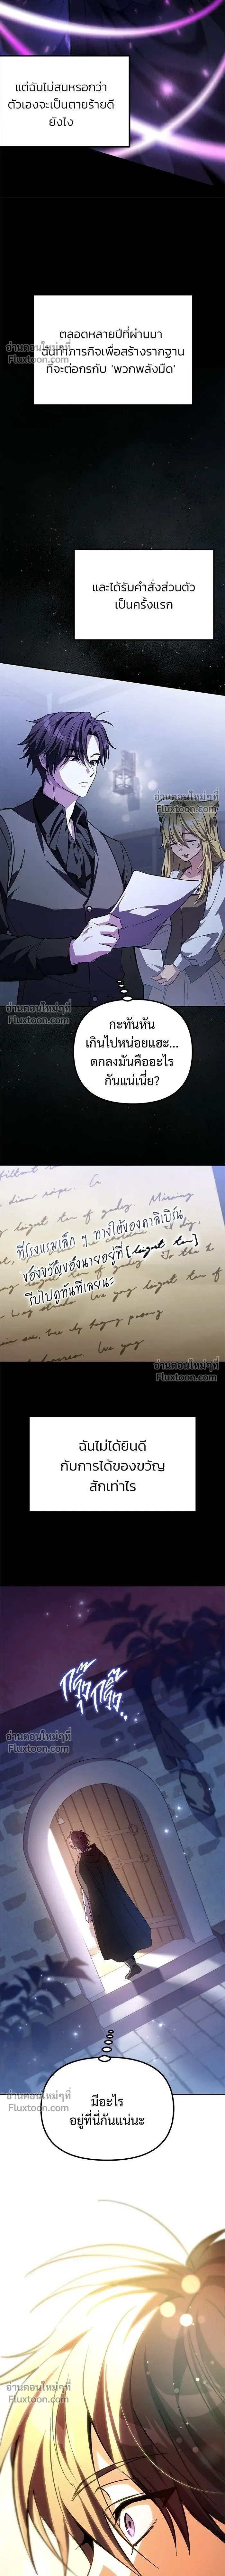 แต่ฉันไม่สนหรอกว่า
ตัวเองจะเป็นตายร้ายดี
ยังไง
ตลอดหลายปีที่ผ่านมา
ฉันทำภารกิจเพื่อสร้างรากฐาน
ที่จะต่อกรกับ 'พวกพลังมืด'
อ่านตอนใหม่ๆที่
Fluxtoon.com
และได้รับคำสั่งส่วนตัว
เป็นครั้งแรก
อ่านตอนใหม่ๆที่
Fluxtoon.com
อ่านตอนใหม่ๆที่
Fluxtoon.com
กะทันหัน
เกินไปหน่อยแฮะ...
ตกลงมันคืออะไร
กันแน่เนี่ย?
ที่โรงแรมเล็ก ๆ ทางใต้ของคาลิเบิร์น
ของขวัญของนายอยู่ที่
รีบไปดูทันทีเลยนะ
อ่านตอนใหม่ๆที่
Fluxtoon.com
ฉันไม่ได้ยินดี
กับการได้ของขวัญ
สักเท่าไร
กรุ๊งกริ๊ง..
อ่านตอนใหม่ๆที่
Fluxtoon.com
มีอะไร
อยู่ที่นี่กันแน่นะ
อ่านตอนใหม่ๆที่
Fluxtoon.com
อ่านตอนใหม่ๆที่
Fluxtoon.com